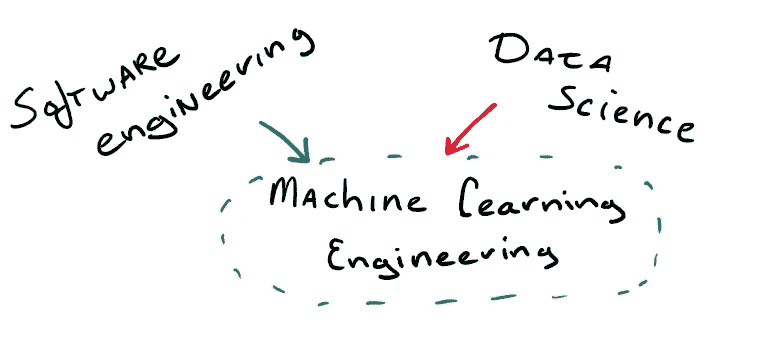 Software
engineering
Data
Science
Machine Learning
Engineering